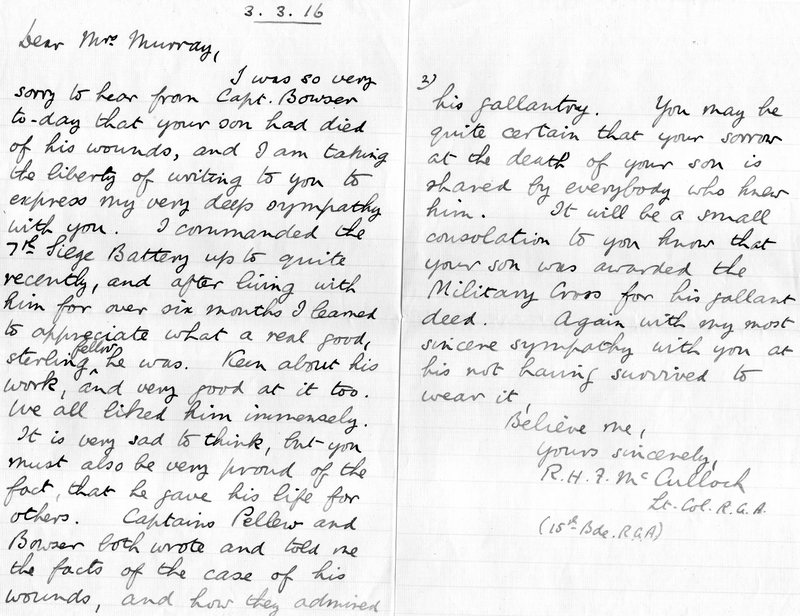 3.3.16
Dear Mrs Murray,
I was so very
sorry to hear from Capt. Bowser
to-day that your son had died
of his wounds, and I am taking
the liberty of writing to you to
express my very deep sympathy
with you. I commanded the
7th Siege Battery up to quite
recently, and after living with
him for over six months I learned
to appreciate what a real good,
sterling fellow he was. Keen about his
work, and very good at it too.
We all liked him immensely.
It is very sad to think, but you
must also be very proud of the
fact, that he gave his life for
others. Captains Pellew and
Bowser both wrote and told me
the facts of the case of his
wounds, and how they admired
2)
his gallantry. You may be
quite certain that your sorrow
at the death of your son is
shared by everybody who knew
him. It will be a small
consolation to you know that
your son was awarded the
Military Cross for his gallant
deed. Again with my most
sincere sympathy with you at
his not having survived to
wear it,
Believe me,
yours sincerely,
R.H.F. McCulloch
Lt-Col. R.G.A.
(15th Bde. R.G.A)